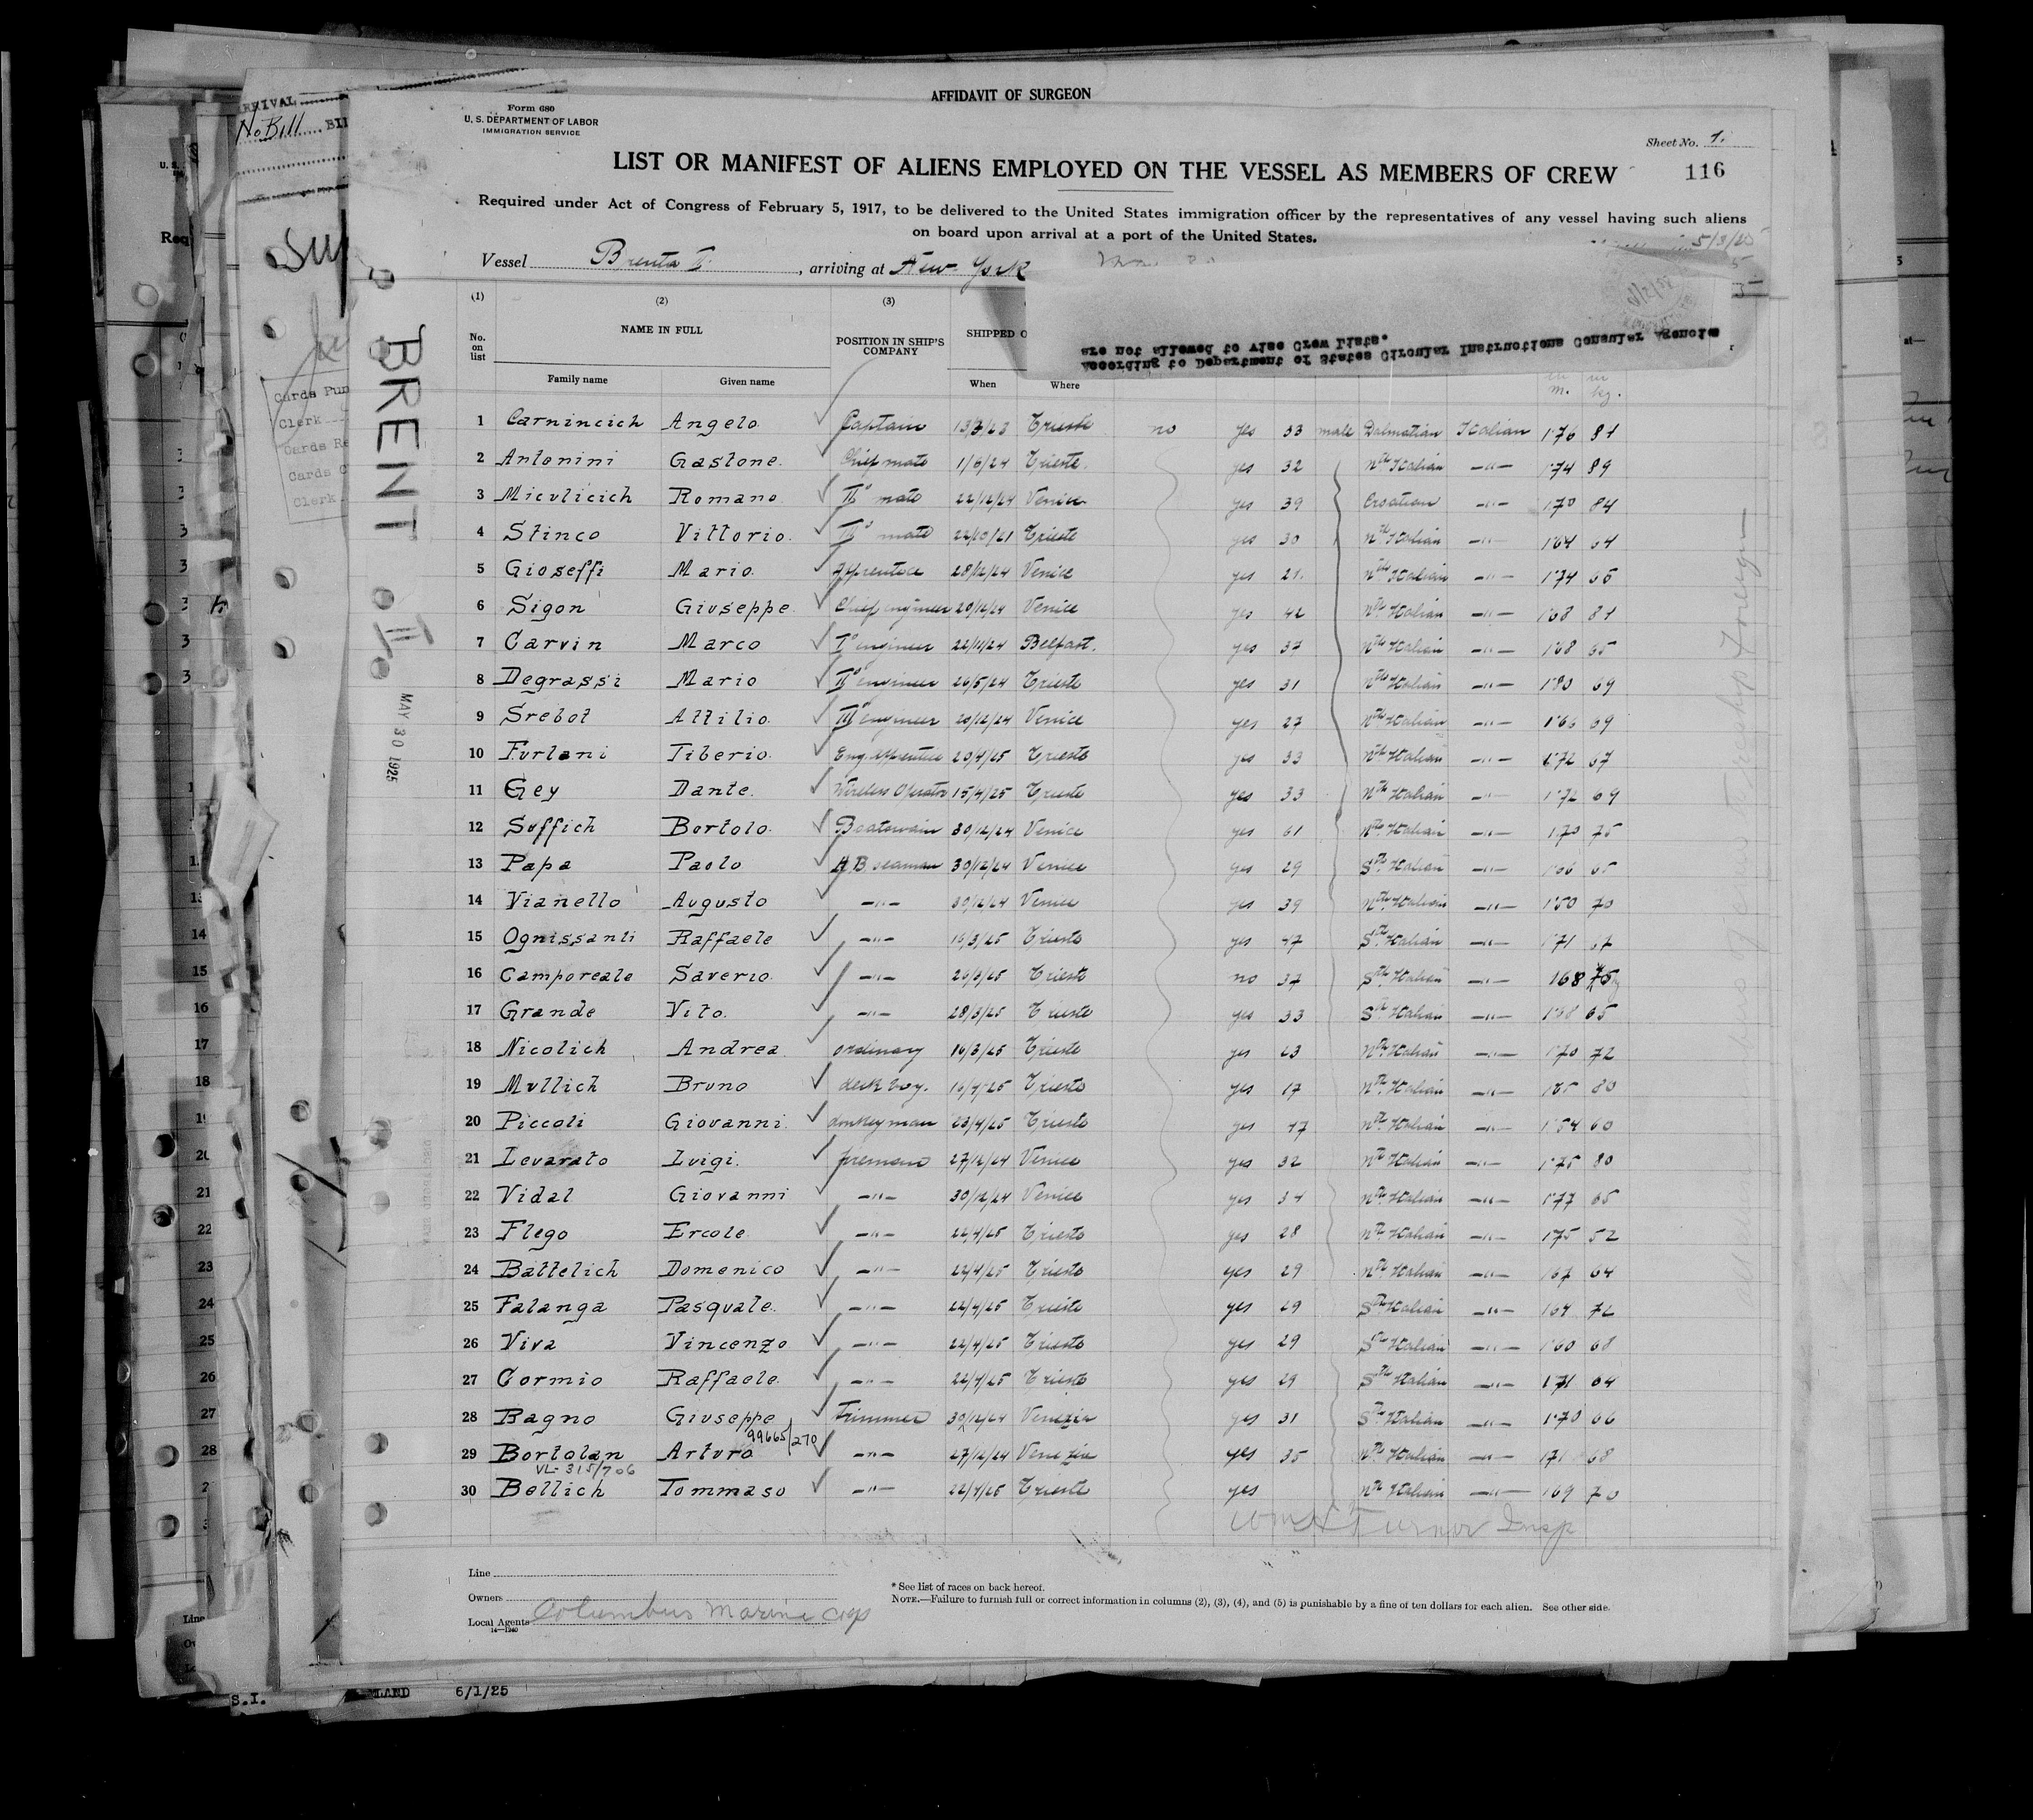 AFFIDAVIT OF SURGEON
Form 680
U. S. DEPARTMENT OF LABOR
IMMIGRATION SERVICE
Sheet No. 1.
LIST OR MANIFEST OF ALIENS EMPLOYED ON THE VESSEL AS MEMBERS OF CREW
116
Required under Act of Congress of February 5, 1917, to be delivered to the United States immigration officer by the representatives of any vessel having such aliens
on board upon arrival at a port of the United States.
5/3/25
Vessel Brenta II, arriving at New York
According to Department of States Circular Instructions Consular Agencies
are not allowed to vise Crew Lists.
(1) (2) (3)
No. on list NAME IN FULL POSITION IN SHIP'S COMPANY SHIPPED O
Family name Given name When Where m. kg.
1 Carnincich Angelo Captain Trieste no yes 33 male Dalmatian Italian 1'76 81
2 Antonini Gastone. Chief mate 1/6/24 Trieste. yes 32 Nth Italian —"— 1'74 89
3 Miculicich Romano IIo mate 22/12/24 Venice yes 39 Croatian —"— 1'70 84
4 Stinco Vittorio. mate Trieste yes 30 Nth Italian —"— 1'64 64
5 Gioseffi Mario. apprentice 28/12/24 Venice yes 21. Nth Italian —"— 1'74
6 Sigon Giuseppe. Chief engineer 20/12/24 Venice yes 42 Nth Italian —"— 1'68 81
7 Carvin Marco Io engineer 22/11/24 Belfast. yes 37 Nth Italian —"— 1'68 65
8 Degrassi Mario IIo engineer 26/5/24 Trieste yes 31 Nth Italian —"— 1'80 69
9 Srebot Attilio. IIIo engineer 20/12/24 Venice yes 27 Nth Italian —"— 1'66 69
10 Furlani Tiberio. Eng. apprentice 20/4/25 Trieste yes 33 Nth Italian —"— 1'72 67
11 Gey Dante. Wireless Operator 15/4/25 Trieste yes 33 Nth Italian —"— 1'72 69
12 Suffich Bortolo. Boatswain 30/12/24 Venice yes 61 Nth Italian —"— 1'70 75
13 Papa Paolo A.B. seaman 30/12/24 Venice yes 29 Sth Italian —"— 1'66 65
14 Vianello Augusto —"— 30/12/24 Venice yes 39 Nth Italian —"— 1'50 70
15 Ognissanti Raffaele —"— 16/3/25 Trieste yes 47 Sth Italian —"— 1'71 67
16 Camporeale Saverio. —"— 26/3/25 Trieste no 37 Sth Italian —"— 168 75
17 Grande Vito. —"— 28/3/25 Trieste yes 33 Sth Italian —"— 1'68 65
18 Nicolich Andrea ordinary 16/3/25 Trieste yes 23 Nth Italian —"— 1'70 72
19 Mullich Bruno deck boy. 16/4/25 Trieste yes 17 Nth Italian —"— 80
20 Piccoli Giovanni. donkeyman 23/4/25 Trieste yes 47 Nth Italian —"— 1'54 60
21 Levarato Luigi. fireman 27/12/24 Venice yes 32 Nth Italian —"— 1'75 80
22 Vidal Giovanni —"— 30/12/24 Venice yes 31 Nth Italian —"— 1'77 65
23 Flego Ercole. —"— 22/4/25 Trieste yes 28 Nth Italian —"— 175 52
24 Battelich Domenico —"— 22/4/25 Trieste yes 29 Nth Italian —"— 167 64
25 Falanga Pasquale. —"— 22/4/25 Trieste yes 29 Sth Italian —"— 164 72
26 Viva Vincenzo —"— 22/4/25 Trieste yes 29 Sth Italian —"— 1'60 68
27 Cormio Raffaele. —"— 22/4/25 Trieste yes 29 Sth Italian —"— 171 64
28 Bagno Giuseppe Trimmer 30/12/24 Venezia yes 31 Sth Italian —"— 1'70 66
99665/270
29 Bortolan Arturo —"— 27/12/24 Venezia yes 35 Nth Italian —"— 171 68
VL-315/706
30 Bellich Tommaso —"— 22/4/25 Trieste yes Nth Italian —"— 169 70
Wm H Turner Insp
Line
Owners
Local Agents Columbus Marine Corp
14—1240
* See list of races on back hereof.
NOTE.—Failure to furnish full or correct information in columns (2), (3), (4), and (5) is punishable by a fine of ten dollars for each alien. See other side.
BRENT
II
MAY 30 1925
RRIVAL
No Bill
Cards Pun
Clerk
Cards Re
Cards C
Clerk
S.I.
LAND 6/1/25